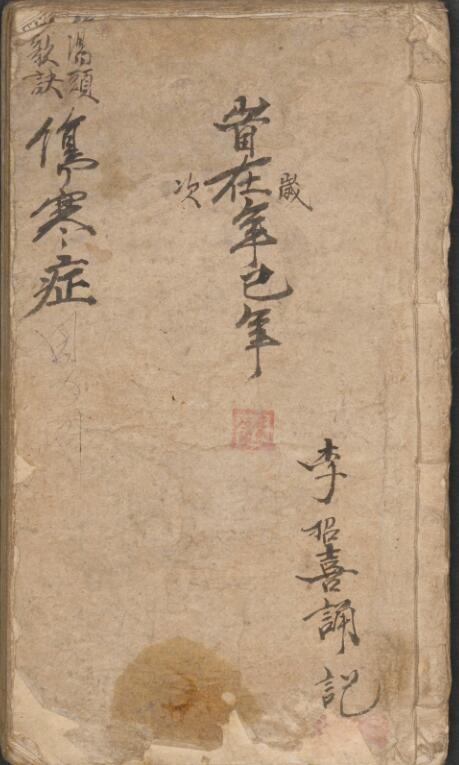 李招喜誦記
歲次
旹在辛巳年
湯頭
歌訣
傷寒症